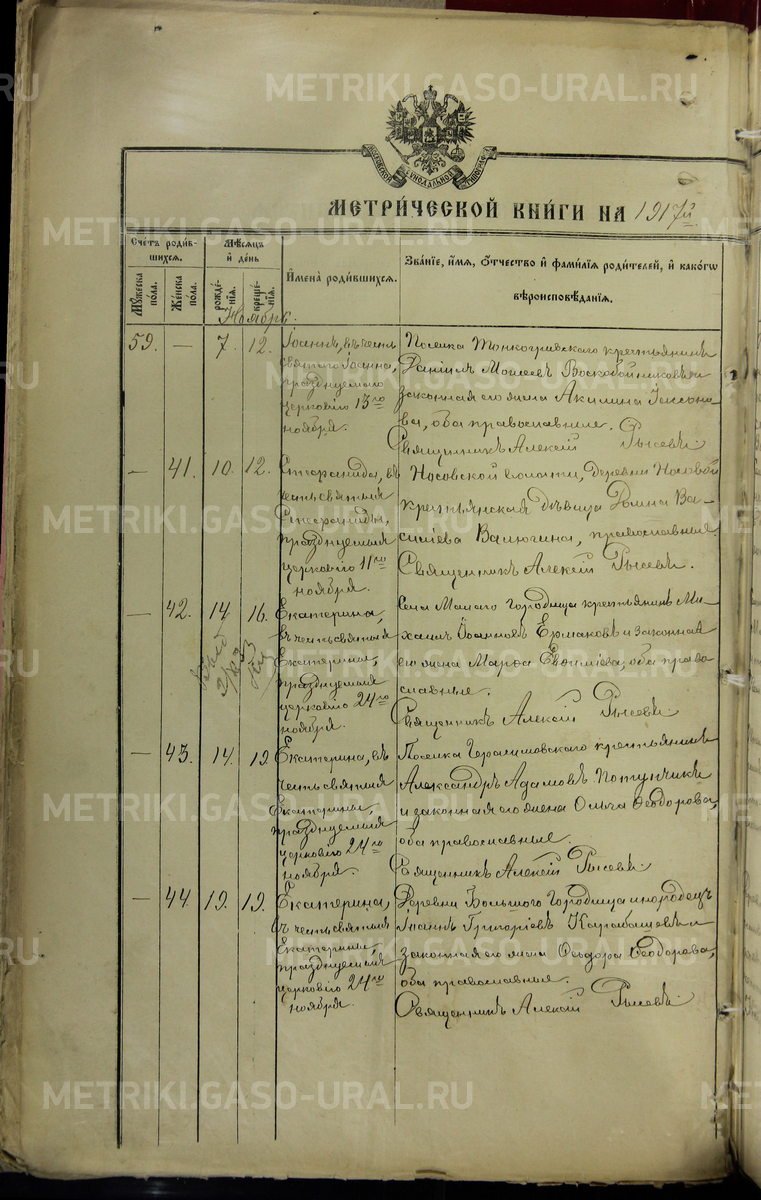 METRIKI.GASO-URAL.RU
МОСКОВСКОЙ СѴНОДАЛЬНОЙ ТИПОГРАФІИ
МЕТРИ́ЧЕСКОЙ КНИ́ГИ НА 1917й
Сче́тъ роди́в-
шихсѧ.
Мꙋ́жеска
по́ла.
Же́нска
по́ла.
Мѣ́сѧцъ
и҆ де́нь
рожде́-
нїѧ.
креще́-
нїѧ.
И҆мена̀ роди́вшихсѧ.
Зва́нїе, и҆́мѧ, ѻ҆́тчество и҆ фами́лїѧ роди́телей, и҆ како́гѡ
вѣроисповѣ́данїѧ.
Ноябрь.
59. — 7. 12.
Іоаннъ, въ честь
святаго Іоанна,
празднуемаго
церковію 13го
ноября.
Поселка Тонкогривскаго крестьянинъ
Даніилъ Моисеевъ Воскобойниковъ и
законная его жена Акилина
ва, оба православные.
Священникъ Алексій Рысевъ.
— 41. 10. 12.
Стефанида, въ
честь святыя
Стефаниды,
празднуемыя
церковію 11го
ноября.
Носовской волости, деревни Носовой
крестьянская дѣвица Домна Ва-
силіева Валюгина, православная.
Священникъ Алексій Рысевъ.
— 42. 14 16.
Екатерина,
въ честь святыя
Екатерины,
празднуемыя
церковію 24го
ноября.
Села Малаго Городища крестьянинъ Ми-
хаилъ Іоанновъ Ермаковъ и законная
его жена Марфа Евѳиміева, оба право-
славные.
Священникъ Алексій Рысевъ.
— 43. 14. 19
Екатерина, въ
честь святыя
Екатерины,
празднуемыя
церковію 24го
ноября.
Поселка Герасимовскаго крестьянинъ
Александръ Адамовъ Потупчикъ
и законная его жена Ольга Ѳеодорова,
оба православные.
Священникъ Алексій Рысевъ.
— 44. 19. 19.
Екатерина,
въ честь святыя
Екатерины,
празднуемыя
церковію 24го
ноября.
Деревни Большого Городища инородецъ
Іоаннъ Григоріевъ Карабашевъ и
законная его жена Ѳеодора Ѳеодорова,
оба православные.
Священникъ Алексій Рысевъ.
METRIKI.GASO-URAL.RU